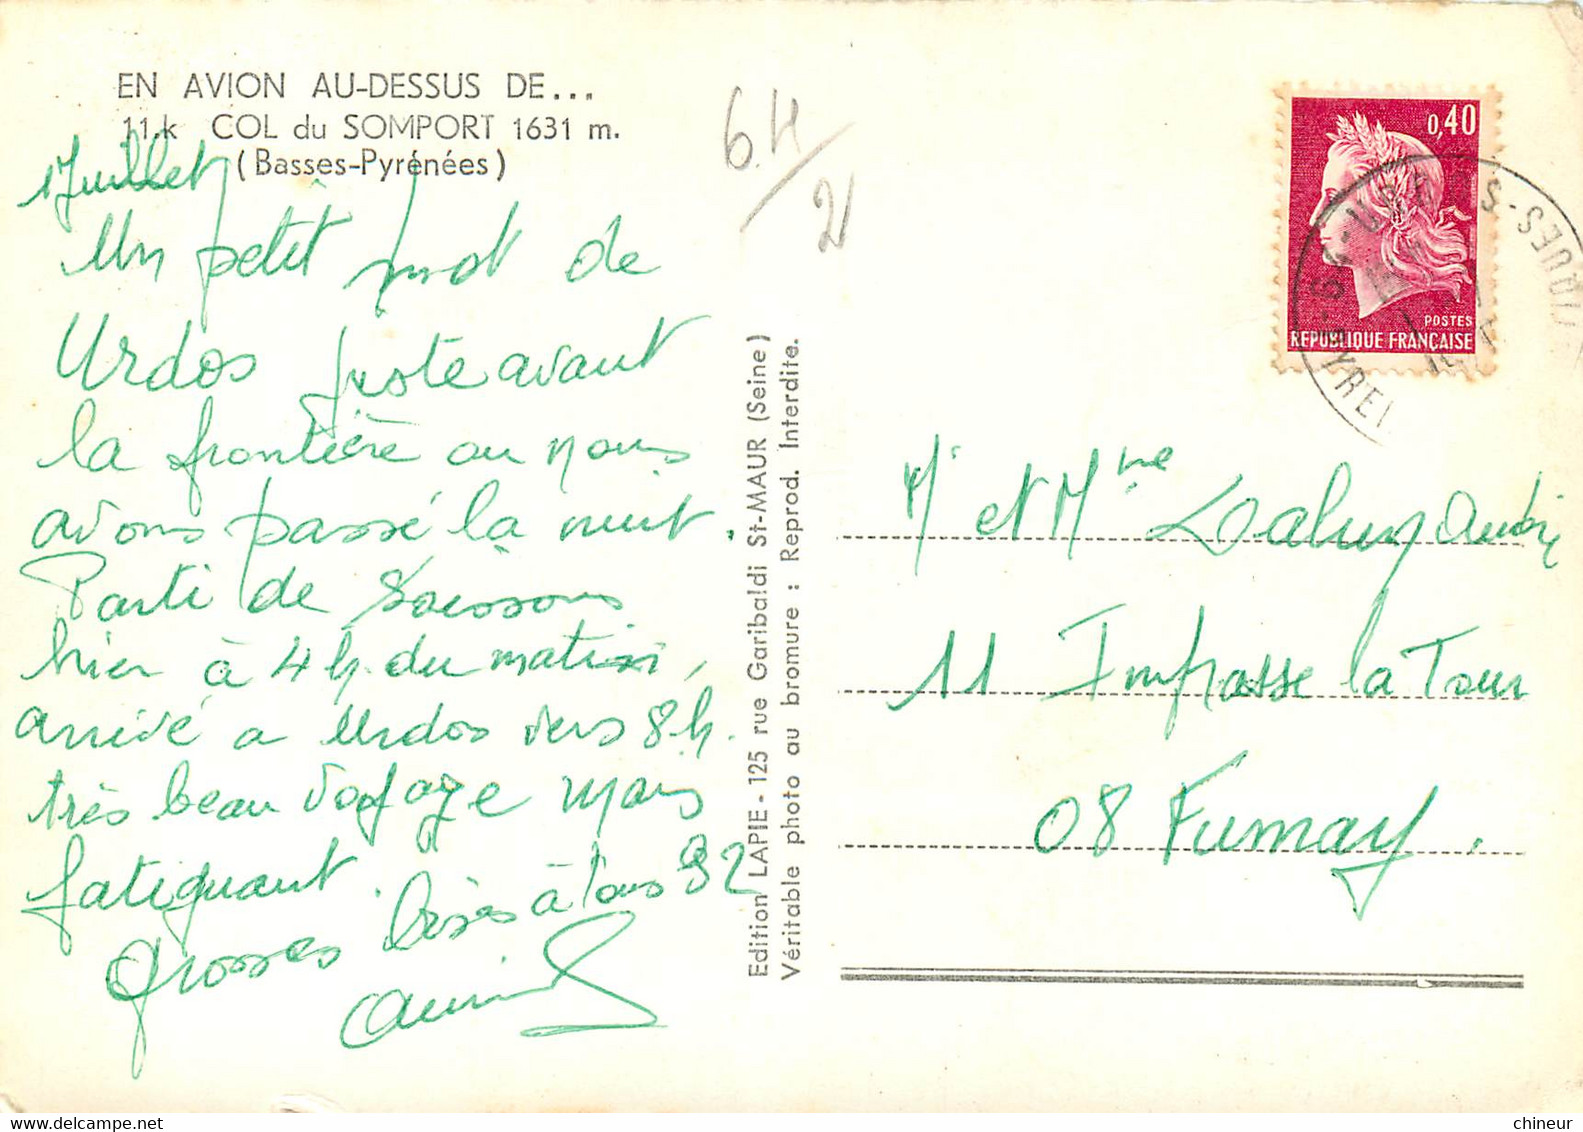 EN AVION AU-DESSUS DE...
11.k COL du SOMPORT 1631 m.
(Basses-Pyrénées)
1 Juillet
Un petit mot de
Urdos juste avant
la frontière ou nous
avons passé la nuit.
Parti de Soissons
hier à 4 h. du matin,
arrivé a Urdos vers 8 h.
très beau voyage mais
fatiguant.
Grosses bises à tous
64/2
Edition LAPIE - 125 rue Garibaldi St-MAUR (Seine)
Véritable photo au bromure : Reprod. Interdite.
0,40
POSTES
REPUBLIQUE FRANÇAISE
Mr et Mme
11 Impasse la Tour
08 Fumay.
chineur